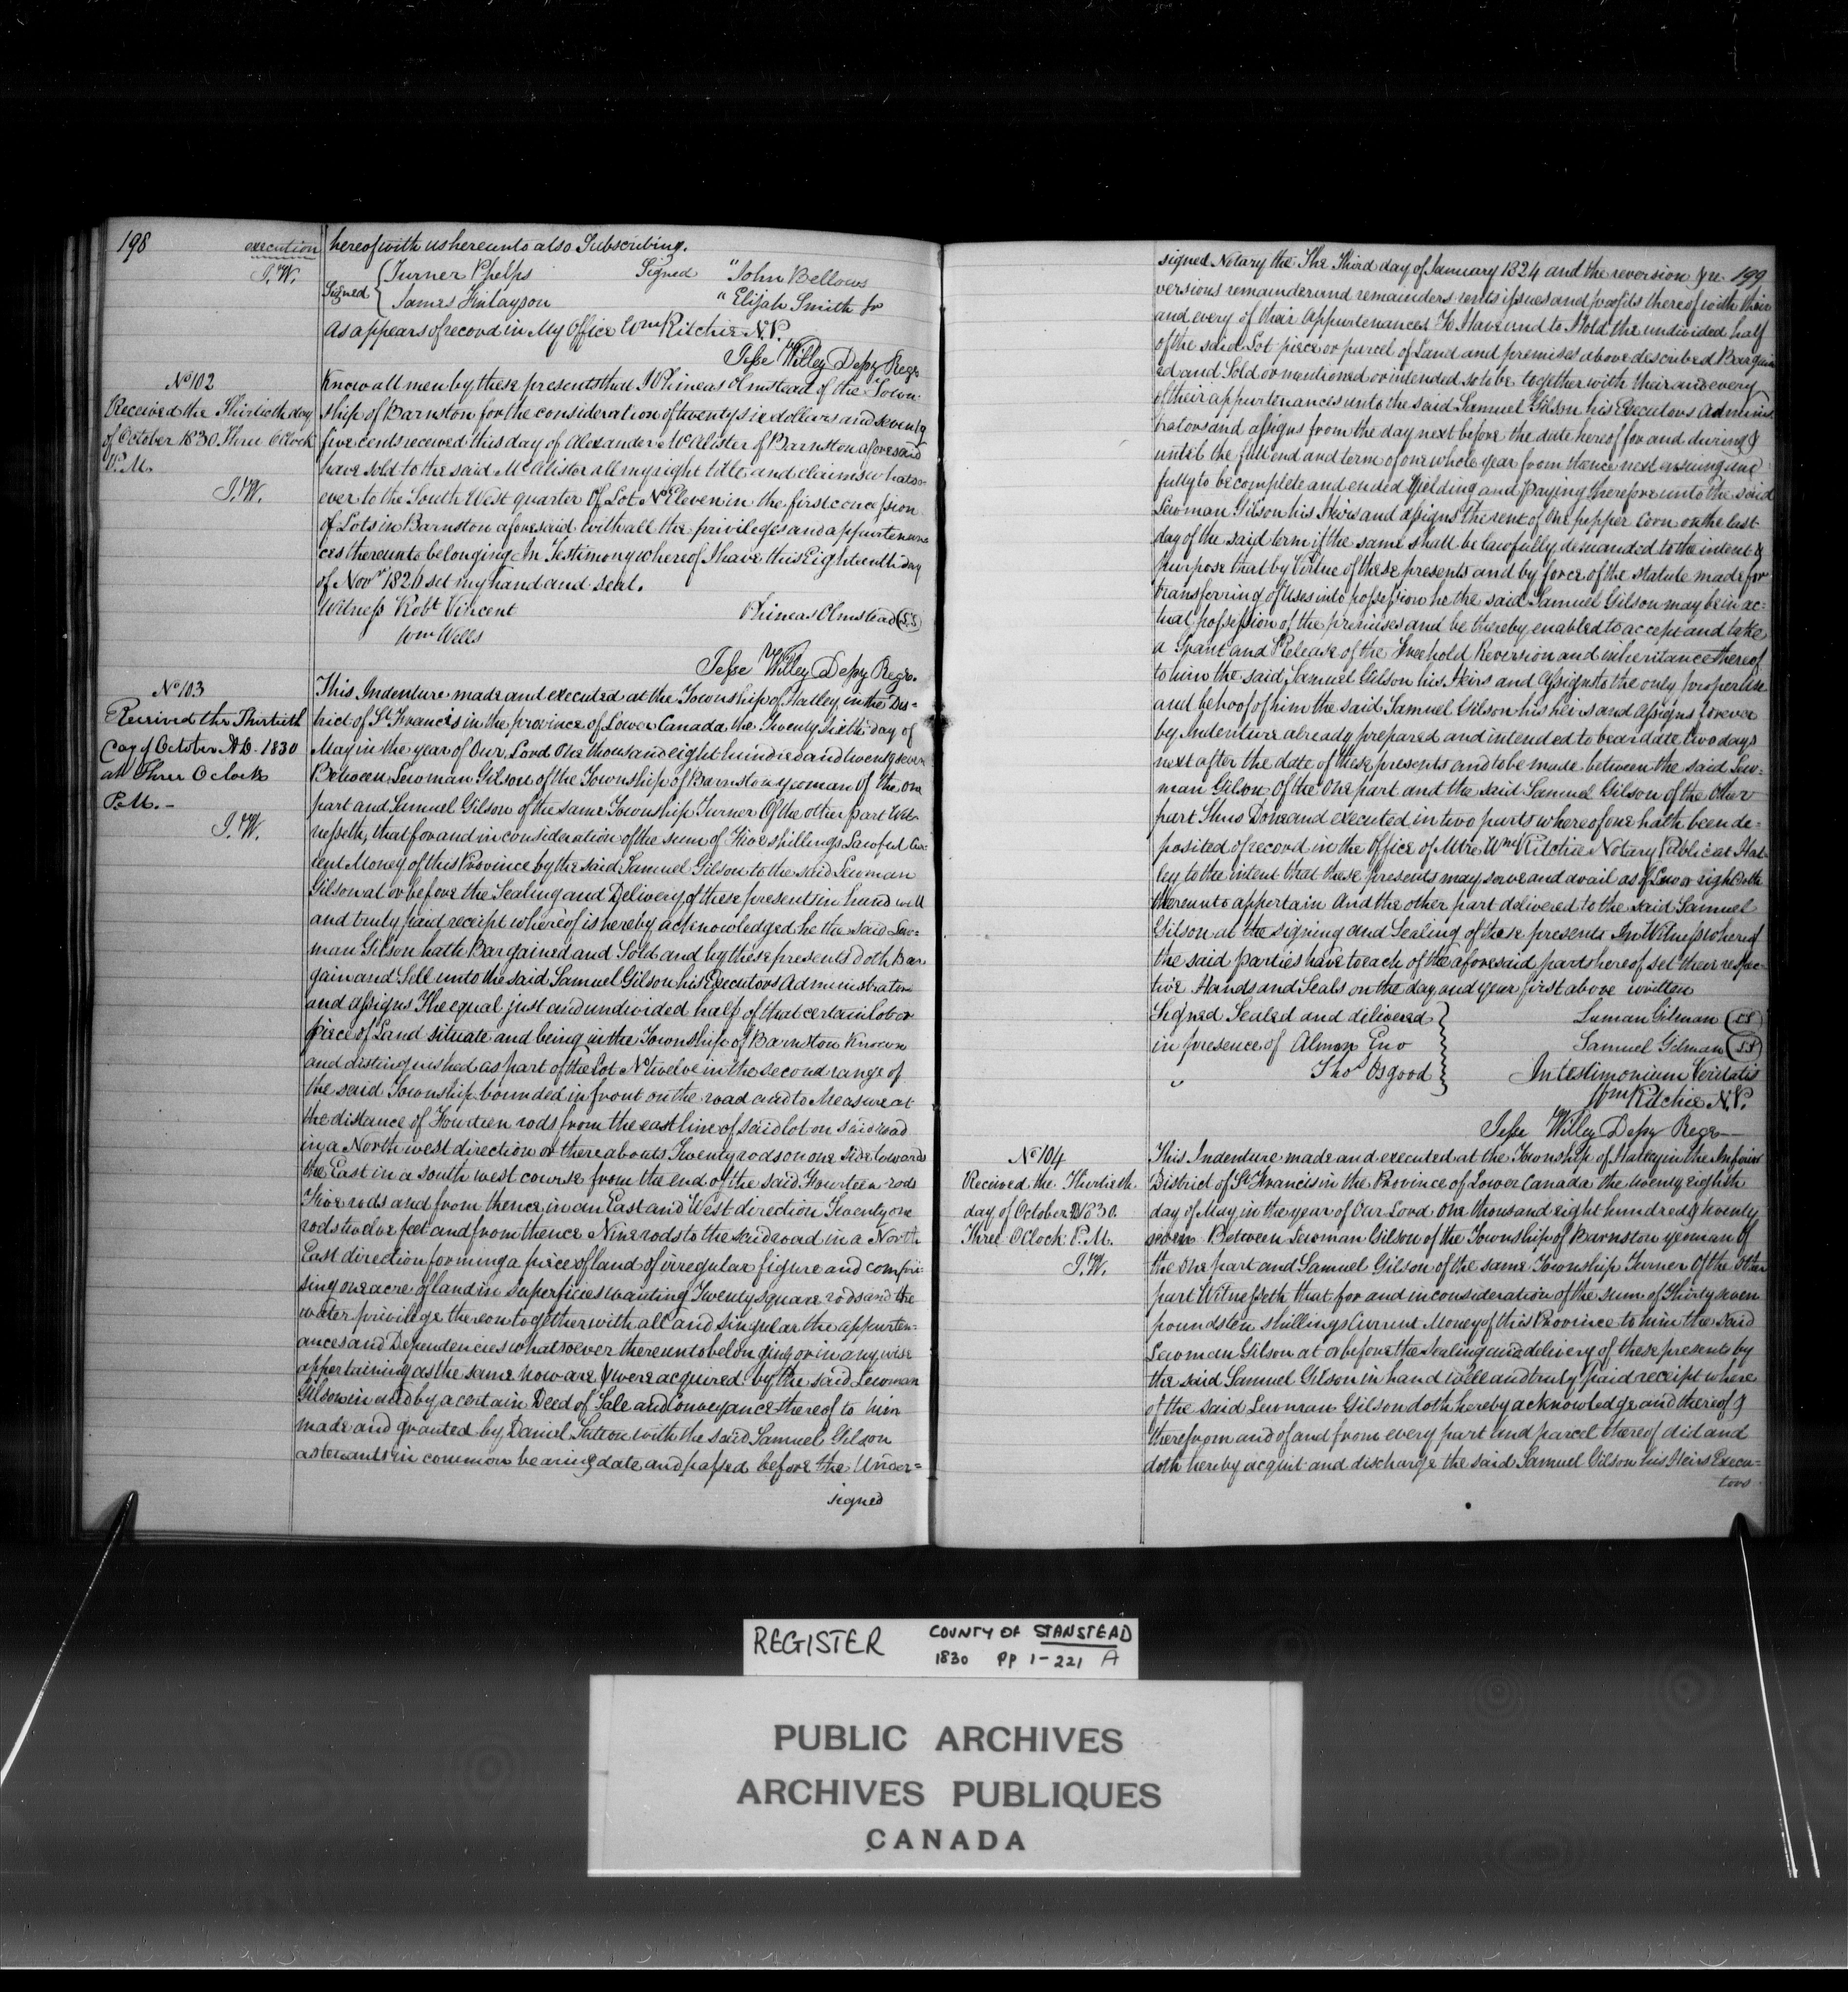 198
execution
J.W.
hereof with us hereunto also Subscribing.
Signed { Turner Phelps Signed "John Bellows
James Finlayson "Elijah Smith Jr
As appears of record in My Office Wm Ritchie N.P.
Jesse Willey Depy Regr
No 102
Received the Thirtieth day
of October 1830. Three OClock
P.M.
J.W.
Know all men by these presents that I Phineas Olmstead of the Town-
ship of Barnston for the consideration of twenty six dollars and seventy
five cents received this day of Alexander McAllister of Barnston aforesaid
have sold to the said McAlister all my right title and claims whatso-
ever to the South West quarter Of Lot No Eleven in the first concession
of Lots in Barnston aforesaid with all the privileges and appurtenan
ces thereunto belonging In Testimony whereof I have this Eighteenth day
of Novr 1820 set my hand and seal.
Witness Robt Vincent Phineas Olmstead (L.S)
Wm Wells
Jesse Willey Depy Regr.
No 103
Received the Thirtieth
day of October A.D. 1830
at Three Oclock
P.M. –
J.W.
This Indenture made and executed at the Township of Hatley, in the Dis=
trict of St Francis in the province of Lower Canada the Twenty Sixth day of
May in the year of Our Lord One thousand eight hundred and twenty seven
Between Lewman Gilson of the Township of Barnston yeoman of the one
part and Samuel Gilson of the same Township Turner Of the other part Wit-
nesseth, that for and in consideration of the sum of Five shillings Lawful Cur
rent Money of this Province by the said Samuel Gilson to the said Lewman
Gilson at or before the Sealing and Delivery of these presents in hand well
and truly paid receipt whereof is hereby acknowledged he the said Lew=
man Gilson hath Bargained and Sold and by these presents Doth Bar
gain and Sell unto the said Samuel Gilson his Executors Administrators
and assigns The equal just and undivided half of that certain lot or
piece of Land situate and being in the Township of Barnston Known
and distinguished as part of the Lot No twelve in the second range of
the said Township bounded in front on the road and to Measure at
the distance of Fourteen rods from the east line of said lot on said road
in a North west direction or thereabouts Twenty rods on one side towards
the East in a south west course from the end of the said Fourteen rods
Five rods and from thence in an East and West direction Twenty one
rods twelve feet and from thence Nine rods to the said road in a North
East direction forming a piece of land of irregular figure and compri-
sing one acre of land in superficies wanting Twenty square rods and the
water privilege thereon together with all and singular the appurten=
ances and Dependencies whatsoever thereunto belonging or in any wise
appertaining as the same now are & were acquired by the said Lewman
Gilson in and by a certain Deed of Sale and Conveyance thereof to him
made and granted by Daniel Sutton with the said Samuel Gilson
as tenants in common bearing date and passed before the Under=
signed
signed Notary the The Third day of January 1824 and the reversion & re- 199
versions remainder and remainders rents issues and profits thereof with their
and every of their Appurtenances To Have and to Hold the undivided half
of the said Lot piece or parcel of Land and premises above described Bargain
ed and Sold or mentioned or intended so to be together with their and every
of their appurtenances unto the said Samuel Gilson his Executors Adminis
trators and assigns from the day next before the date hereof for and during &
until the full end and term of one whole year from thence next ensuing and
fully to be complete and ended Yielding and paying therefore unto the said
Lewman Gilson his Heirs and assigns the rent of One pepper Corn on the last
day of the said term if the same shall be lawfully demanded to the intent &
purpose that by Virtue of these presents and by force of the statute made for
transferring of Uses into possession he the said Samuel Gilson may be in ac=
tual possession of the premises and be thereby enabled to accept and take
a Grant and Release of the Freehold Reversion and inheritance thereof
to him the said Samuel Gilson his Heirs and Assigns to the only proper Use
and behoof of him the said Samuel Gilson his heirs and Assigns forever
by Indenture already prepared and intended to bear date two days
next after the date of these presents and to be made between the said Lew=
man Gilson Of the One part and the said Samuel Gilson of the Other
part Thus Done and executed in two parts whereof one hath been de=
posited of record in the Office of Mtre Wm Ritchie Notary Public at Hat
ley to the intent that these presents may serve and avail as of Law or right Doth
thereunto appertain And the other part delivered to the said Samuel
Gilson at the signing and Sealing of these presents In Witness whereof
the said parties have to each of the aforesaid parts hereof set their respec-
tive Hands and Seals on the day and year first above written
Signed Sealed and delivered } Luman Gilman (L.S)
in presence of Alman Eno } Samuel Gilman (L.S)
" Thos Osgood } In testimonium Veritatis
Wm Ritchie N.P.
Jesse Willey Depy Regr
No 104
Received the Thirtieth
day of October 1830.
Three OClock P.M.
J.W.
This Indenture made and executed at the Township of Hatley in the Inferior
District of St Francis in the Province of Lower Canada the twenty eighth
day of May in the year of Our Lord One thousand eight hundred & twenty
seven Between Lewman Gilson of the Township of Barnston yeoman of
the One part and Samuel Gilson of the same Township Turner Of the Other
part Witnesseth that for and in consideration of the sum of Thirty seven
pounds ten shillings Current Money of this Province to him the said
Lewman Gilson at or before the Sealing and delivery of these presents by
the said Samuel Gilson in hand well and truly paid receipt where
of the said Lewman Gilson doth hereby acknowledge and thereof &
therefrom and of and from every part and parcel thereof did and
doth hereby acquit and discharge the said Samuel Gilson his Heirs Execu-
tors
REGISTER COUNTY OF STANSTEAD
1830 PP 1-221 A
PUBLIC ARCHIVES
ARCHIVES PUBLIQUES
CANADA